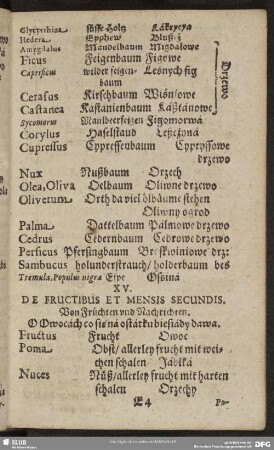 Glycyrrhiza süsse Holtz Lakrycya
Hedera Epphew Bluszcz
Amygdalus Mandelbaum Migdałowe
Ficus Feigenbaum Figowe
Caprificus wilder feigen- Leśnych fig
baum
Cerasus Kirschbaum Wiśniowe
Castanea Kastanienbaum Kásztanowe
Sycomorus Manlbeerfeigen Figomorwá
Drzewo
Corylus Haselstaud Leszczyná
Cupressus Cypressenbaum Cypryssowe
drzewo
Nux Nußbaum Orzech
Olea, Oliva Oelbaum Oliwne drzewo
Olivetum Orth da viel ölbäume stehen
Oliwny ogrod
Palma Dattelbaum Palmowe drzewo
Cedrus Cedernbaum Cedrowe drzewo
Persicus Pfersingbaum Brzoskwiniowe drz:
Sambucus holunderstrauch/ holderbaum bes
Tremula, Populus nigra Espe Osoiná
XV.
DE FRUCTIBUS ET MENSIS SECUNDIS.
Von Früchten vnd Nachrichten.
O Owocách co się ná ostátku biesiády dawa.
Fructus Frucht Owoc
Poma Obst/ allerley frucht mit wei-
chen schalen Jabłká
Nuces Nüß/ allerley frucht mit harten
schalen Orzechy
E4 Po-
SLUB